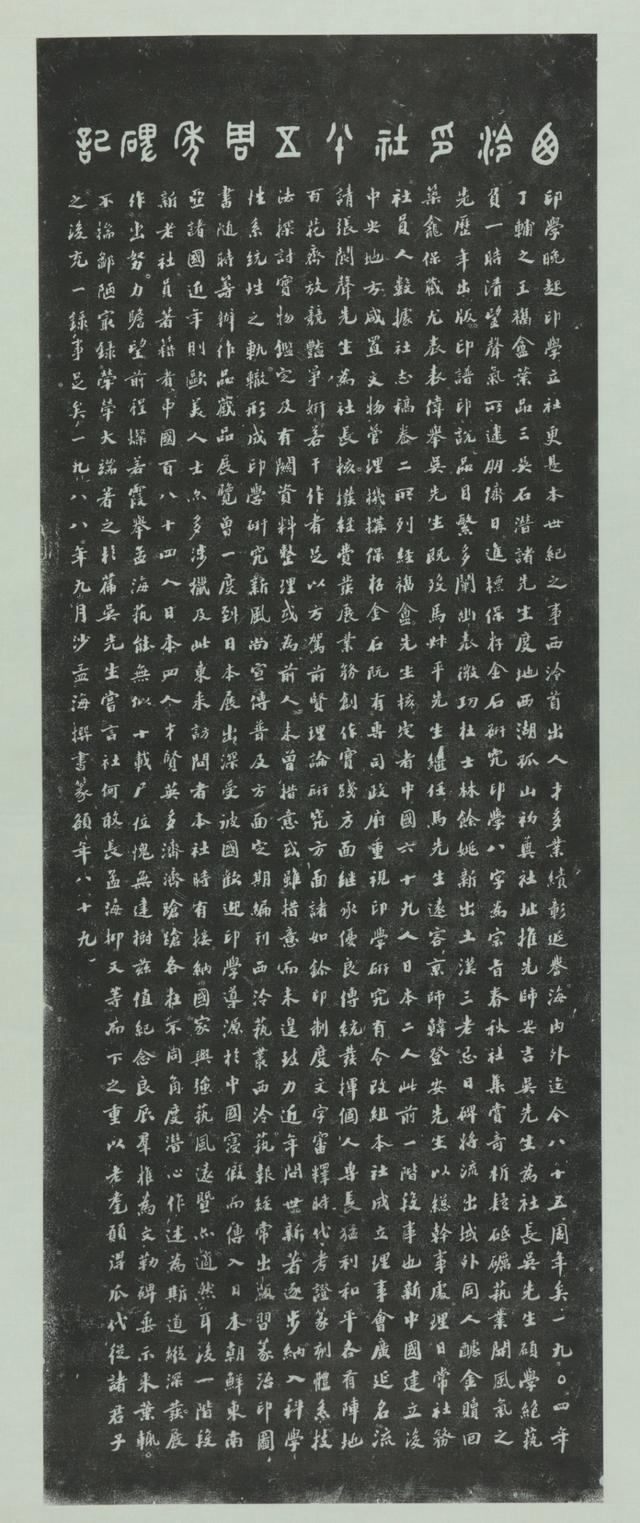 西泠印社八十五周年碑記
印學晚起印學立社更是本世紀之事西泠首出人才多業績彰延譽海內外迄今八十五周年矣一九〇四年
丁輔之王褆盦葉品三吳石潛諸先生度地西湖孤山初奠社址推先師安吉吳先生為社長吳先生碩學絕萟
負一時清望聲氣所逮朋儔日進標保存金石研究印學八字為宗旨春秋社集賞奇析疑砥礪萟業開風氣之
先歷年出版印譜印說品目繁多闡幽表微功杜士林餘姚新出土漢三老忌日碑將流出域外同人醵金贖回
築龕保藏尤表表偉舉吳先生既歿馬叔平先生繼任馬先生遠客京師韓登安先生以總幹事處理日常社務
社員人數據社志稿卷二所列經褆盦先生核定者中國六十九人日本二人此前一階段事也新中國建立後
中央地方咸置文物管理機構保存金石阮有專司政府重視印學研究有令改組本社成立理事會廣延名流
請張閬聲先生為社長核撥經費發展業務創作實踐方面繼承優良傳統發揮個人專長猛利和平各有陣地
百花齊放競豔爭妍若干作者足以方駕前賢理論研究方面諸如鉩印制度文字審釋時代考證篆刻體系技
法探討實物鑑定及有關資料整理或為前人未曾措意或雖措意而未遑致力近年問世新著逐步納入科學
性系統性之軌轍形成印學研究新風尚宣傳普及方面定期編刊西泠萟叢西泠萟報經常出版習篆治印圖
書隨時籌辦作品藏品展覽曾一度到日本展出深受彼國歡迎印學導源於中國寖假而傳入日本朝鮮東南
亞諸國近年則歐美人士亦多涉獵及此東來訪問者本社時有接納國家興強萟風遠暨亦適然耳後一階段
新老社員著籍者中國百八十四人日本四人才賢英多濟濟蹌蹌各在不同角度潛心作述為斯道縱深發展
作出努力瞻望前程燦若霞舉孟海萟能無似十載尸位愧無建樹茲值紀念良辰羣推為文勒碑垂示來葉輒
不揣鄙陋寂錄犖犖大端著之於篇吳先生嘗言社何敢長孟海抑又等而下之重以老耄頤得瓜代從諸君子
之後充一錄事足矣一九八八年九月沙孟海撰書篆額年八十九